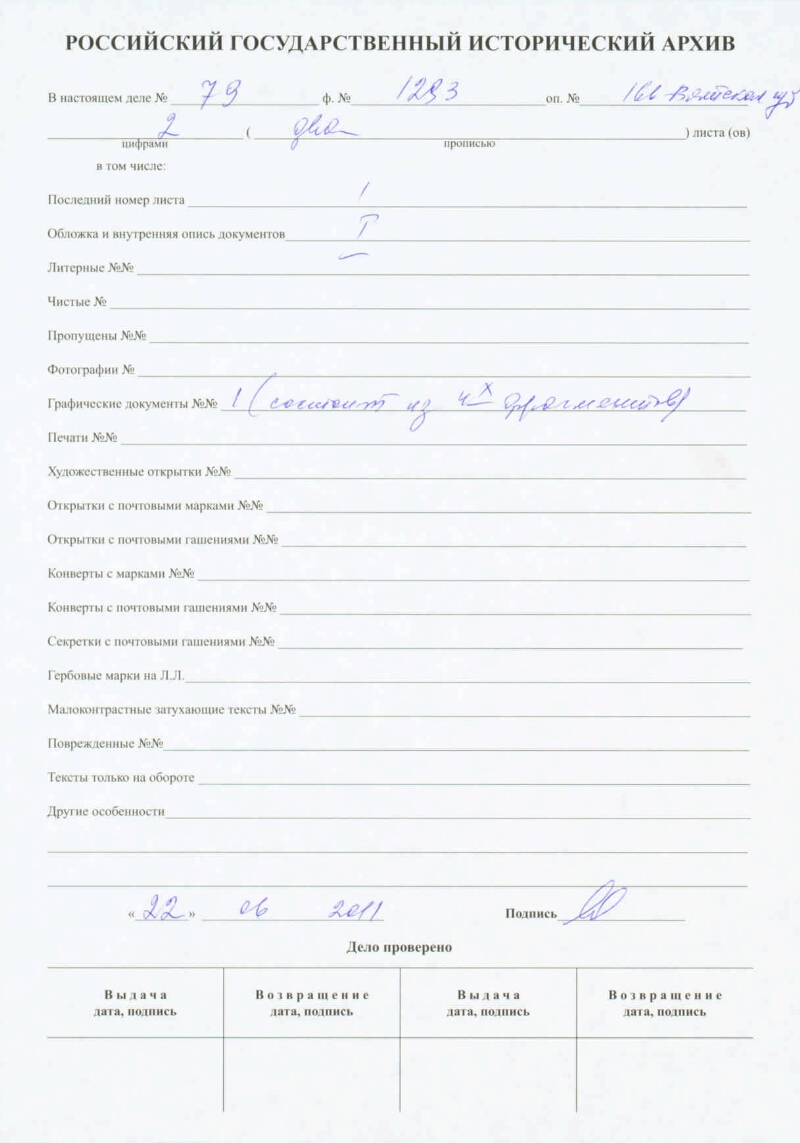 РОССИЙСКИЙ ГОСУДАРСТВЕННЫЙ ИСТОРИЧЕСКИЙ АРХИВ
В настоящем деле № 79 ф. № 1293 оп. № 166 Вятская губ
2 ( два ) листа (ов)
цифрами прописью
в том числе:
Последний номер листа 1
Обложка и внутренняя опись документов I
Литерные №№ —
Чистые №
Пропущены №№
Фотографии №
Графические документы №№ 1 (состоит из 4х фрагментов)
Печати №№
Художественные открытки №№
Открытки с почтовыми марками №№
Открытки с почтовыми гашениями №№
Конверты с марками №№
Конверты с почтовыми гашениями №№
Секретки с почтовыми гашениями №№
Гербовые марки на Л.Л.
Малоконтрастные затухающие тексты №№
Поврежденные №№
Тексты только на обороте
Другие особенности
« 22 » 06 2011 Подпись
Дело проверено
Выдача Возвращение Выдача Возвращение
дата, подпись дата, подпись дата, подпись дата, подпись